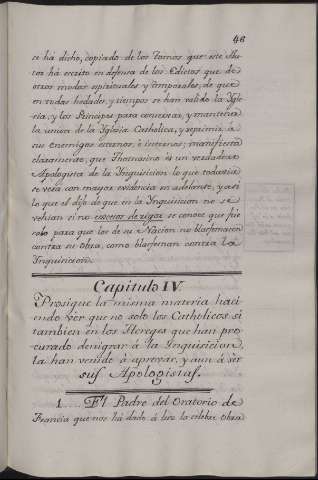 46
se ha dicho, copiado de los Tomos que este Au-
tor há escrito en defensa de los Edictos que de
otros modos espirituales y temporales, de que
en todas hedades, y tiempos se han valido la Ygle-
sia, y los Principes para conservar, y mantener
la union de la Yglesia Catholica, y reprimir à
sus Enemigos externos, è internos; manifiesta
claramente, que Thomasino es un verdadero
Apologista de la Ynquisicion lo que todavia
se verà con mayor evidencia en adelante, y asi
lo que el dijo de que en la Ynquisicion no se
vehian sino excesos de rigor se conoce que fuè
solo para que los de su Nacion no blasfemasen
contra su obra, como blasfeman contra la
Ynquisicion.
Capitulo IV
Prosigue la misma materia haci-
endo ver que no solo los Catholicos si
tambien en los Hereges que han pro-
curado denigrar à la Ynquisicion,
la han venido à aprovar, y aun à ser
sus Apologistas.
1. El Padre del Oratorio de
Francia que nos há dado à luz la celebre obra